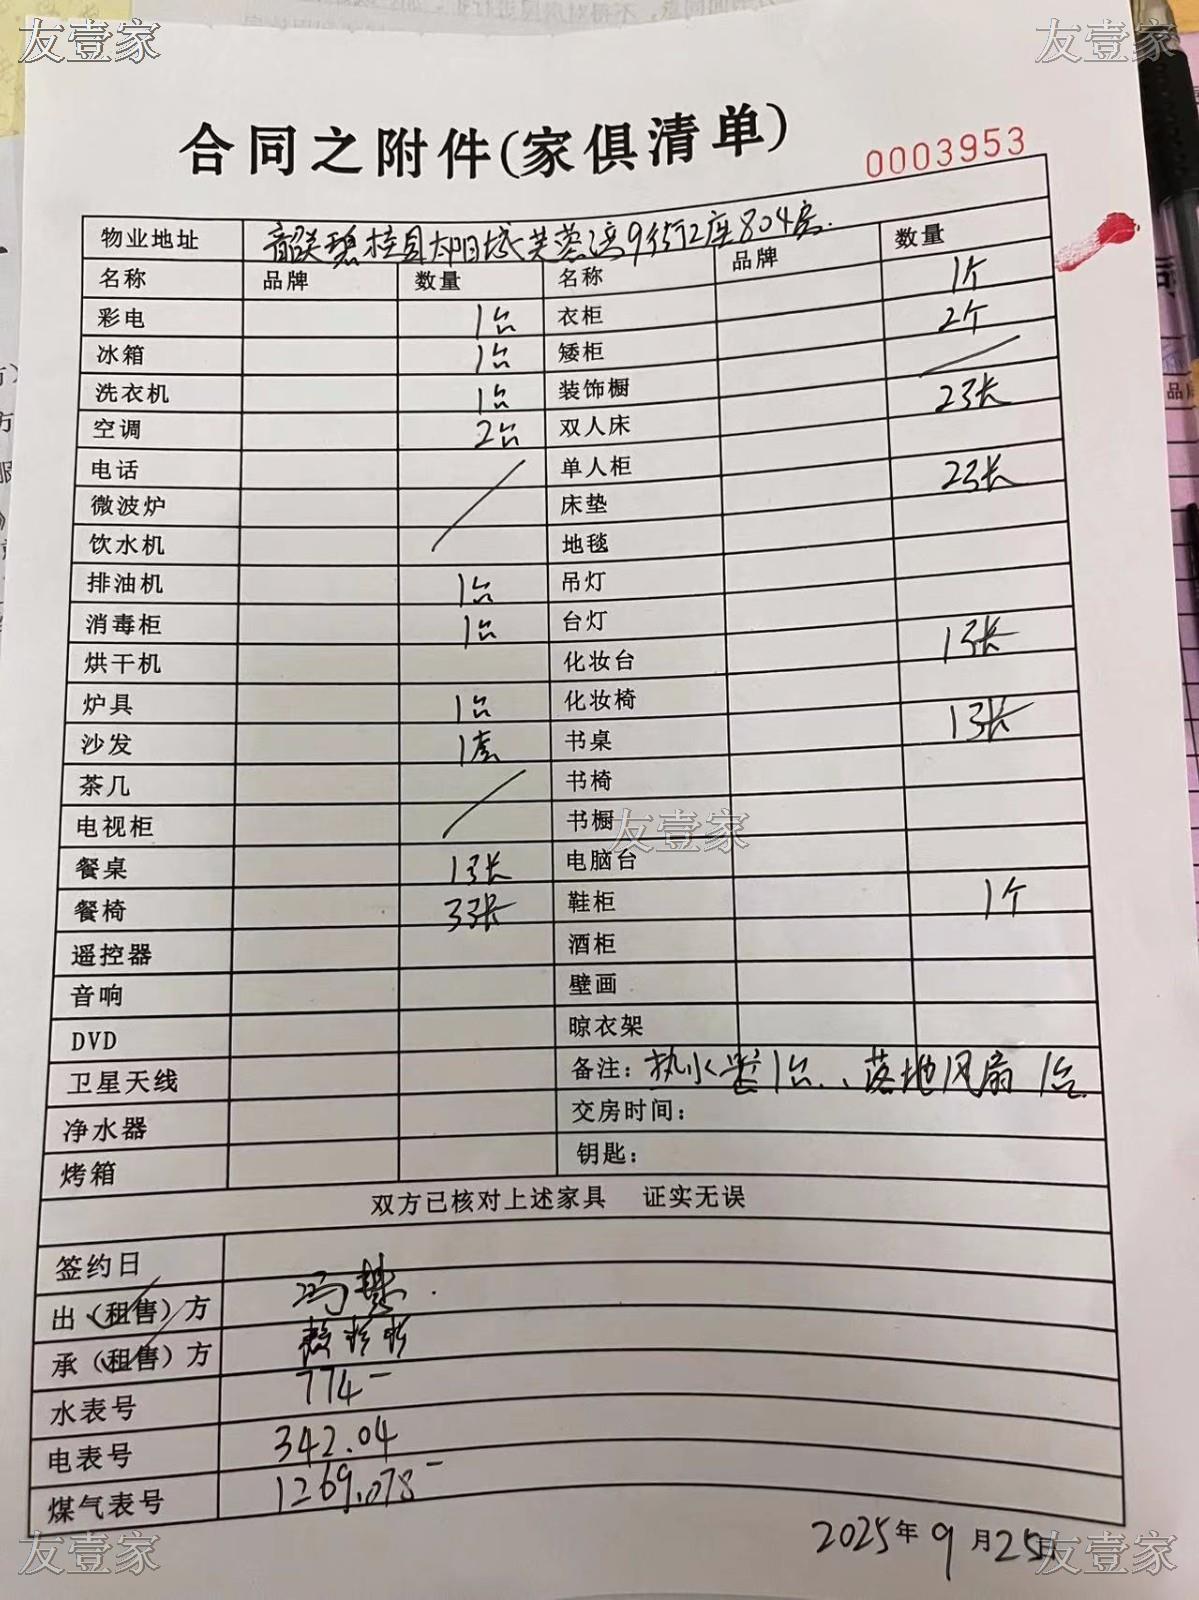 友壹家 友壹家
合同之附件(家俱清单)
0003953
物业地址 韶关碧桂园太阳城芙蓉湾9街12座804房.
名称 品牌 数量 名称 品牌 数量
彩电 1台 衣柜 1个
冰箱 1台 矮柜 2个
洗衣机 1台 装饰橱 /
空调 2台 双人床 2张
电话 / 单人柜
微波炉 床垫 2张
饮水机 地毯
排油机 1台 吊灯
消毒柜 1台 台灯
烘干机 化妆台 1张
炉具 1台 化妆椅
沙发 1套 书桌 1张
茶几 / 书椅
电视柜 书橱
友壹家
餐桌 1张 电脑台
餐椅 3张 鞋柜 1个
遥控器 酒柜
音响 壁画
DVD 晾衣架
卫星天线 备注：热水器1台、落地风扇1台
净水器 交房时间：
烤箱 钥匙：
双方已核对上述家具 证实无误
签约日
出（租售）方 冯慧
承（租售）方 赖彩彩
水表号 774-
电表号 342.04
煤气表号 1269.078-
2025年9月25日
友壹家 友壹家